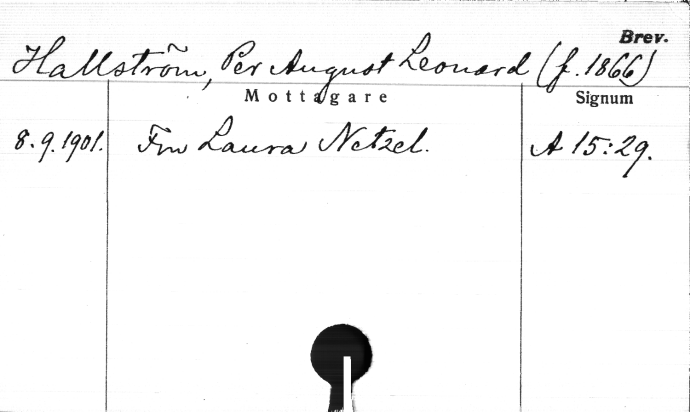 Brev.
Hallström, Per August Leonard (f. 1866)
Mottagare Signum
8.9.1901. Fru Laura Netzel. A 15:29.